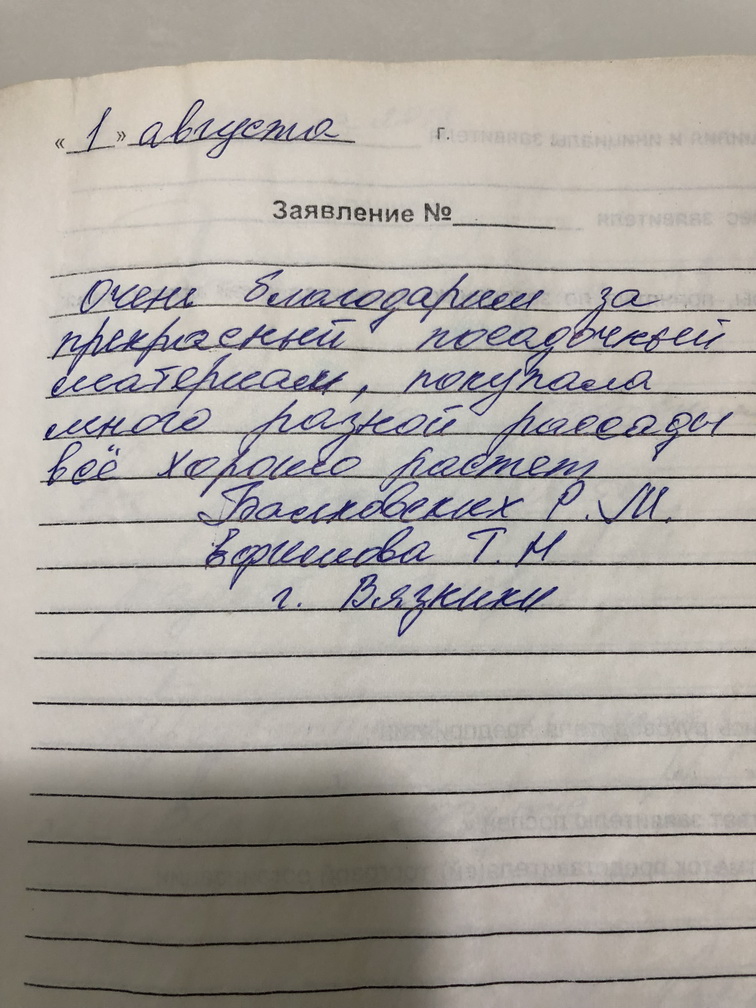 « 1 » августа г.
Заявление №
Очень благодарим за
прекрасный посадочный
материал, покупала
много разной рассады
всё хорошо растет
Р. М.
Ефимова Т. Н
г. Вязники